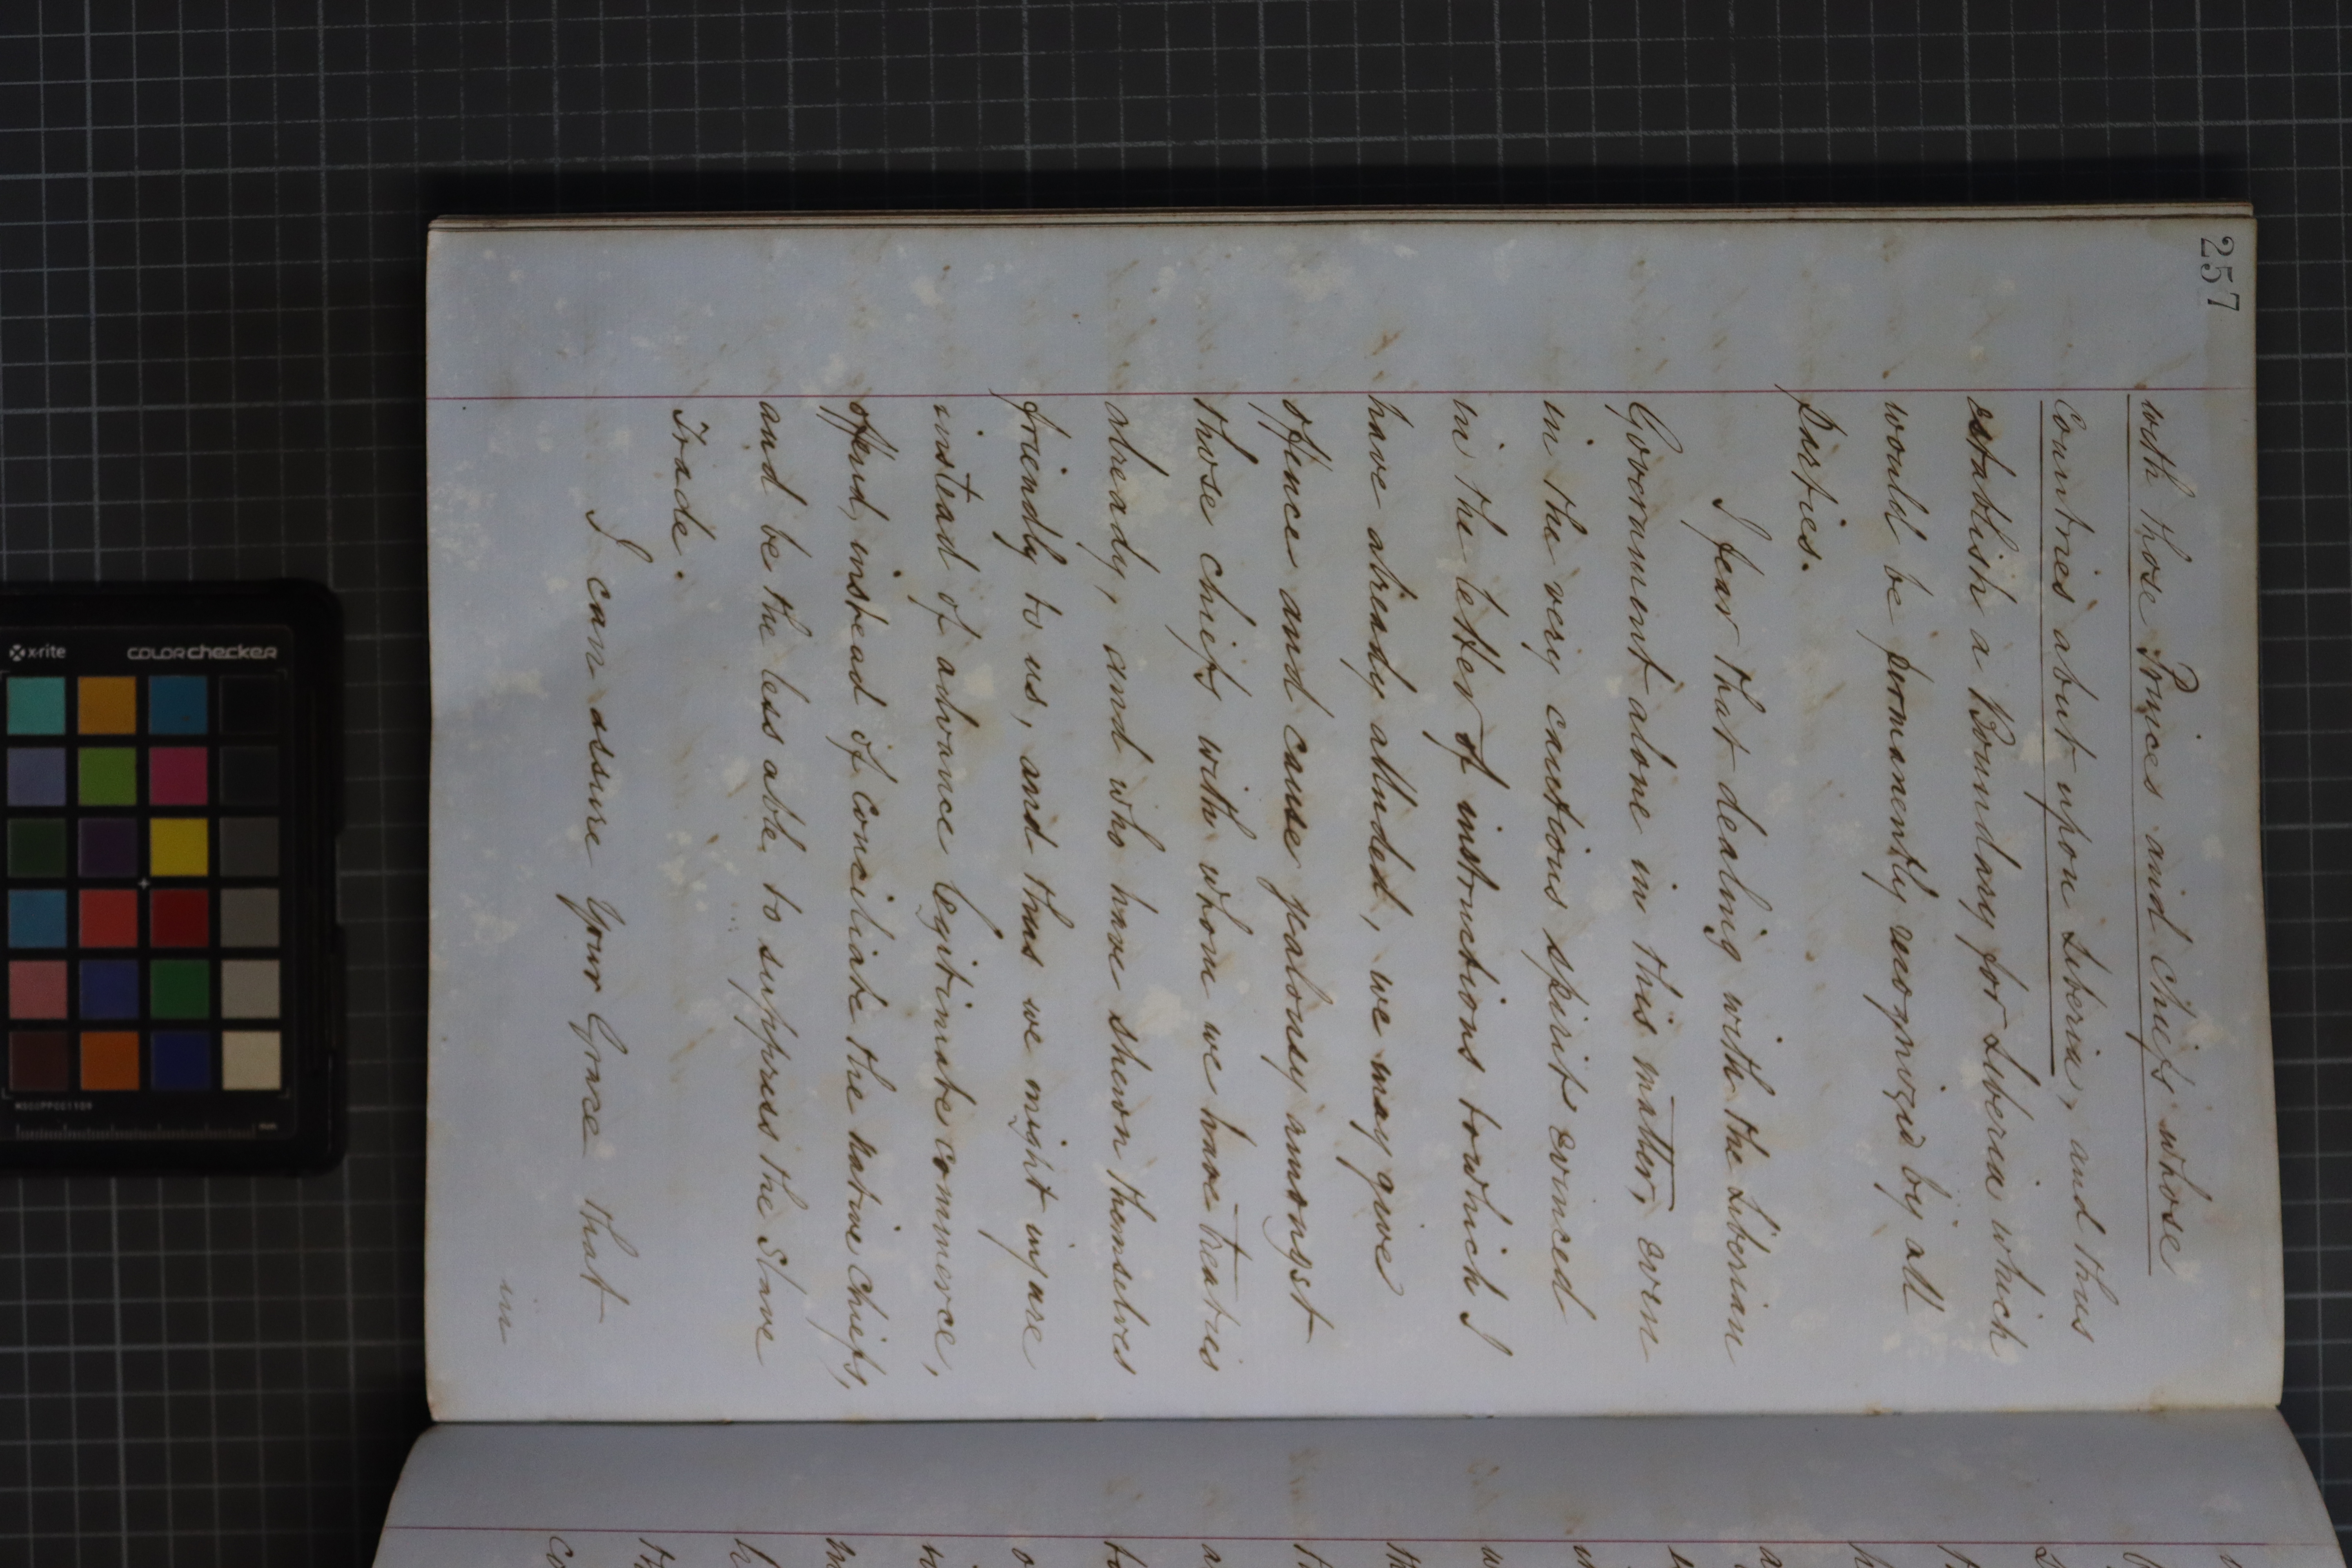 257
with those Princes and Chiefs whose
Countries abut upon Liberia, and thus
establish a Boundary for Liberia which
would be permanently recognized by all
parties.
I fear that dealing with the Liberian
Government alone in this matter, even
in the very cautious spirit evinced
in the letter of instructions to which I
have already alluded, we may give
offence and cause jealousy amongst
those chiefs with whom we have treaties
already, and who have shewn themselves
friendly to us, and thus we might injure
instead of advance legitimate commerce,
offend, instead of conciliate the native chiefs,
and be the less able to suppress the Slave
Trade.
I can assure Your Grace that
in
x-rite
colorchecker